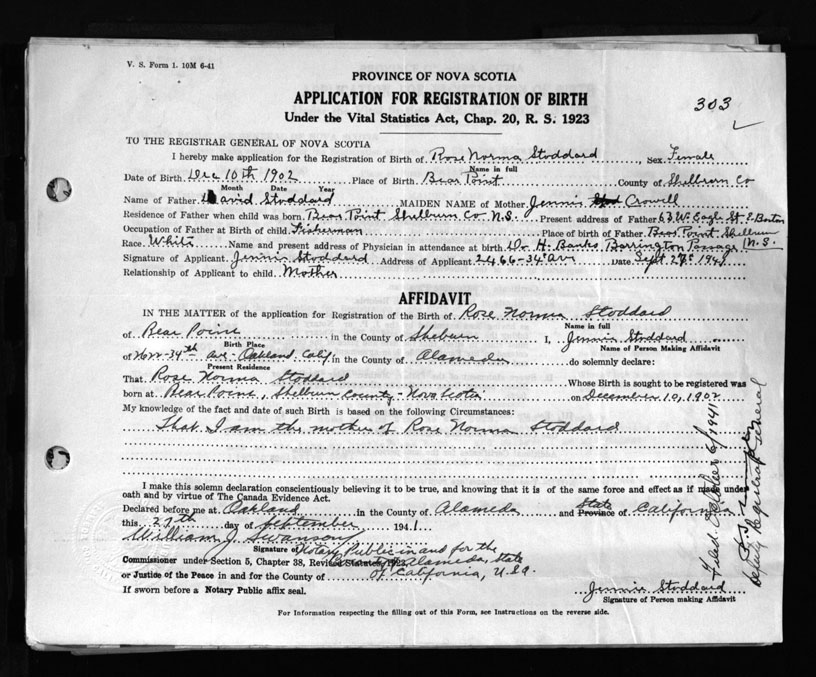 V. S. Form 1. 10M 6-41
PROVINCE OF NOVA SCOTIA
APPLICATION FOR REGISTRATION OF BIRTH
303
Under the Vital Statistics Act, Chap. 20, R. S. 1923
TO THE REGISTRAR GENERAL OF NOVA SCOTIA
I hereby make application for the Registration of Birth of Rose Norma Stoddard, Sex Female
Name in full
Date of Birth Dec 10th 1902 Place of Birth Bear Point County of Shelburn Co
Month Date Year
Name of Father David Stoddard MAIDEN NAME of Mother Jennie Crowell
Residence of Father when child was born Bear Point Shelburn Co N.S. Present address of Father 63 W. Eagle St. E. Boston
Occupation of Father at Birth of child Fisherman Place of birth of Father Bear Point Shelburn
Race White Name and present address of Physician in attendance at birth Dr H. Banks Barrington Passage N.S.
Signature of Applicant Jennie Stoddard Address of Applicant 2466-34th Ave Date Sept 27th 1941
Relationship of Applicant to child Mother
AFFIDAVIT
IN THE MATTER of the application for Registration of the Birth of Rose Norma Stoddard
Name in full
of Bear Point in the County of Shelburn I, Jennie Stoddard
Birth Place Name of Person Making Affidavit
of 34th Ave - Oakland, Calif. in the County of Alameda do solemnly declare:
Present Residence
That Rose Norma Stoddard Whose Birth is sought to be registered was
born at Bear Point, Shelburn County - Nova Scotia on December 10, 1902
My knowledge of the fact and date of such Birth is based on the following Circumstances:
That I am the mother of Rose Norma Stoddard
I make this solemn declaration conscientiously believing it to be true, and knowing that it is of the same force and effect as if made under
oath and by virtue of The Canada Evidence Act.
Declared before me at Oakland in the County of Alameda and State Province of California
this 27th day of September 1941
William J. Swanson
Signature of Notary Public in and for the
Commissioner under Section 5, Chapter 38, Revised Statutes, County of Alameda, State
or Justice of the Peace in and for the County of of California, U.S.A.
If sworn before a Notary Public affix seal.
Jennie Stoddard
Signature of Person making Affidavit
For Information respecting the filling out of this Form, see Instructions on the reverse side.
Filed October 6/1941
Deputy Registrar General